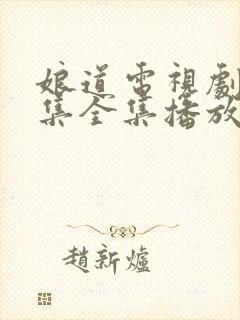 娘道電視劇
集全集播放
趙新爐